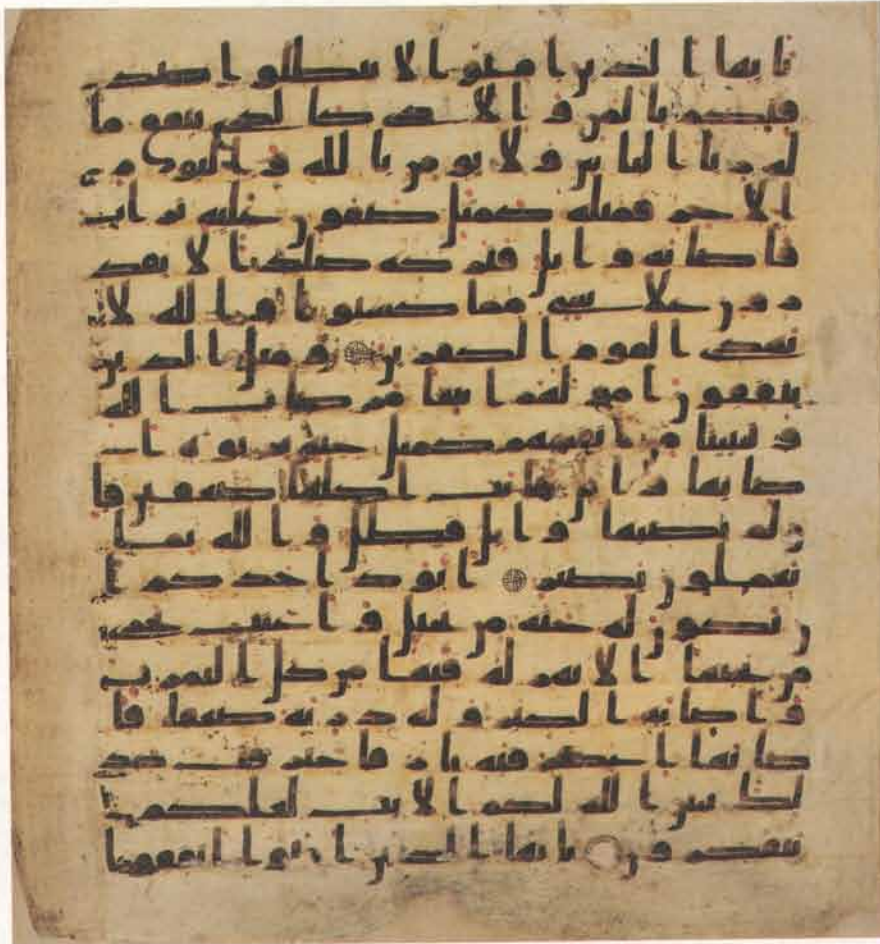 يايها الذين امنوا لا تبطلوا صد
قتكم بالمن والاذى كالذى ينفق ما
له رئا الناس ولا يومن بالله واليوم
الاخر فمثله كمثل صفون عليه تراب
فاصابه وابل فتركه صلدا لا يقد
رون على شى مما كسبوا والله لا
يهدى القوم الكفرين ومثل الذين
ينفقون امولهم ابتغا مرضات الله
وتثبيتا من انفسهم كمثل جنة بربوة ا
صابها وابل فاتت اكلها ضعفين فا
ن لم يصبها وابل فطل والله بما
تعملون بصير ايود احدكم ا
ن تكون له جنة من نخيل واعنب تجرى
من تحتها الانهر له فيها من كل الثمرت
واصابه الكبر وله ذرية ضعفا فا
صابها اعصار فيه نار فاحترقت كذ
لك يبين الله لكم الايت لعلكم
تتفكرون يايها الذين امنوا انفقوا